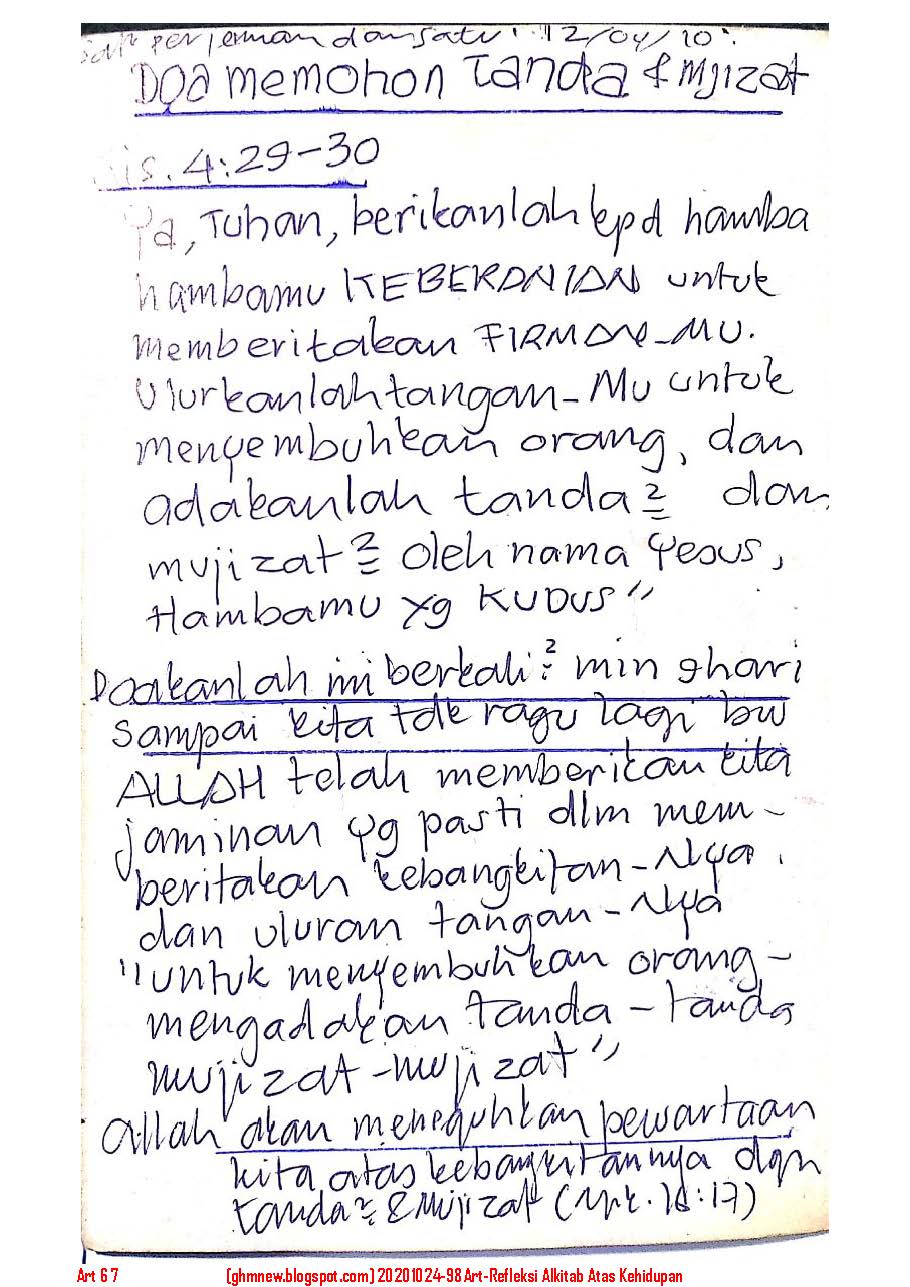 perjanjian dansatu. 12/04/10.
Doa memohon Tanda & Mjizat
Kis. 4:29-30
Ya, Tuhan, berikanlah kpd hamba
hambamu KEBERANIAN untuk
memberitakan FIRMAN-MU.
Ulurkanlah tangan-Mu untuk
menyembuhkan orang, dan
adakanlah tanda2 dan
mujizat2 oleh nama Yesus,
Hambamu yg KUDUS"
Doakanlah ini berkali2 min 9hari
sampai kita tdk ragu lagi bw
ALLAH telah memberikan kita
jaminan yg pasti dlm mem-
beritakan kebangkitan-Nya.
dan uluran tangan-Nya
"untuk menyembuhkan orang-
mengadakan tanda-tanda
mujizat-mujizat"
Allah akan meneguhkan pewartaan
kita atas kebangkitannya dgn
tanda2 & Mujizat (Mrk. 16:17)
Art 67 [ghmnew.blogspot.com] 20201024-98 Art-Refleksi Alkitab Atas Kehidupan